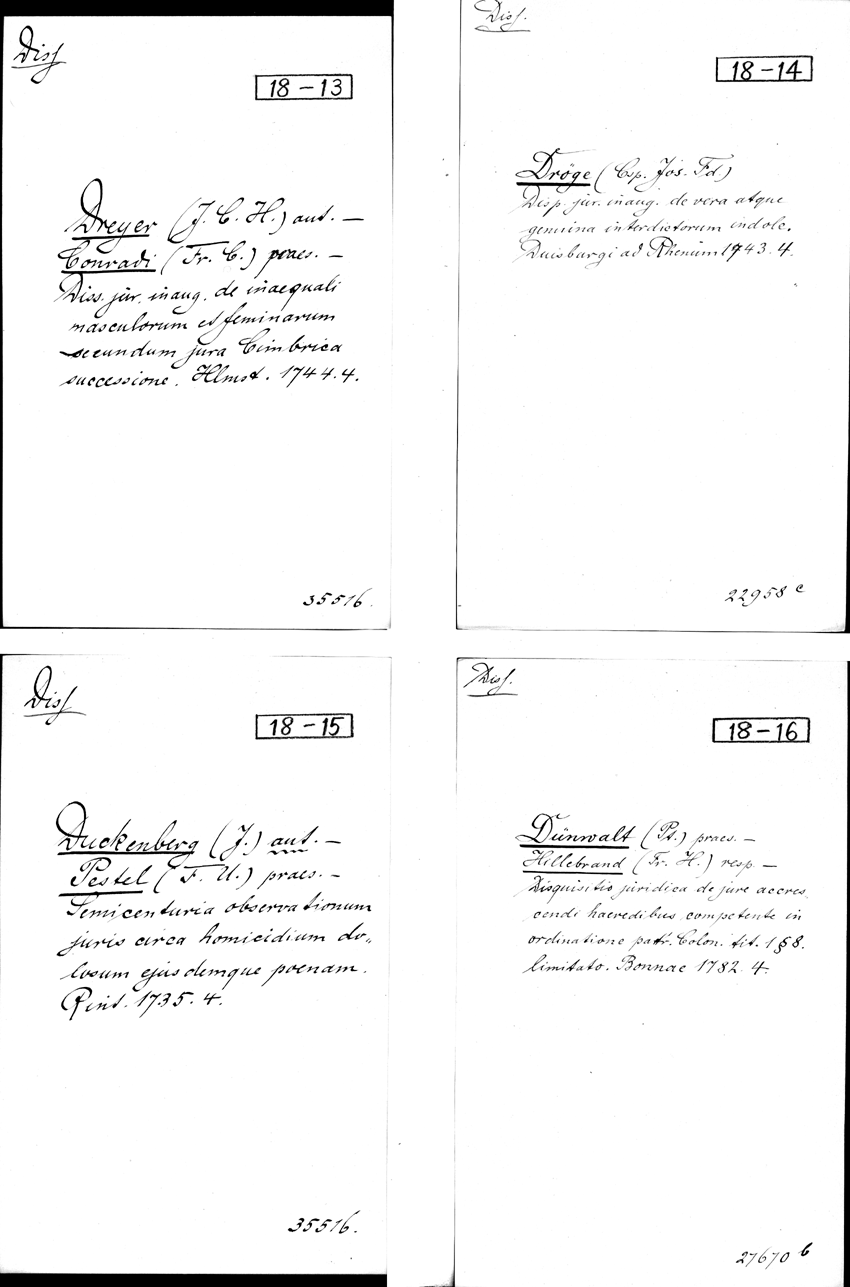 Diss
18-13
Dreyer (J. C. H.) aut. —
Conradi (Fr. C.) praes. —
Diss. jur. inaug. de inaequali
masculorum et feminarum
secundum jura Cimbrica
successione. Hlmst. 1744. 4.
35516.
Diss.
18-14
Dröge (Csp. Jos. Fd)
Disp. jur. inaug. de vera atque
genuina interdictorum indole.
Duisburgi ad Rhenum 1743. 4.
22958 c
Diss
18-15
Duckenberg (J.) aut. —
Pestel (F. U.) praes. —
Semicenturia observationum
juris circa homicidium do„
losum ejusdemque poenam.
Rint. 1735. 4.
35516.
Diss.
18-16
Dünwalt (Pt.) praes. —
Hillebrand (Fr. H.) resp. —
Disquisitio juridica de jure accres
cendi haeredibus competente in
ordinatione patr. Colon. tit. 1 § 8.
limitato. Bonnae 1782. 4.
27670 b